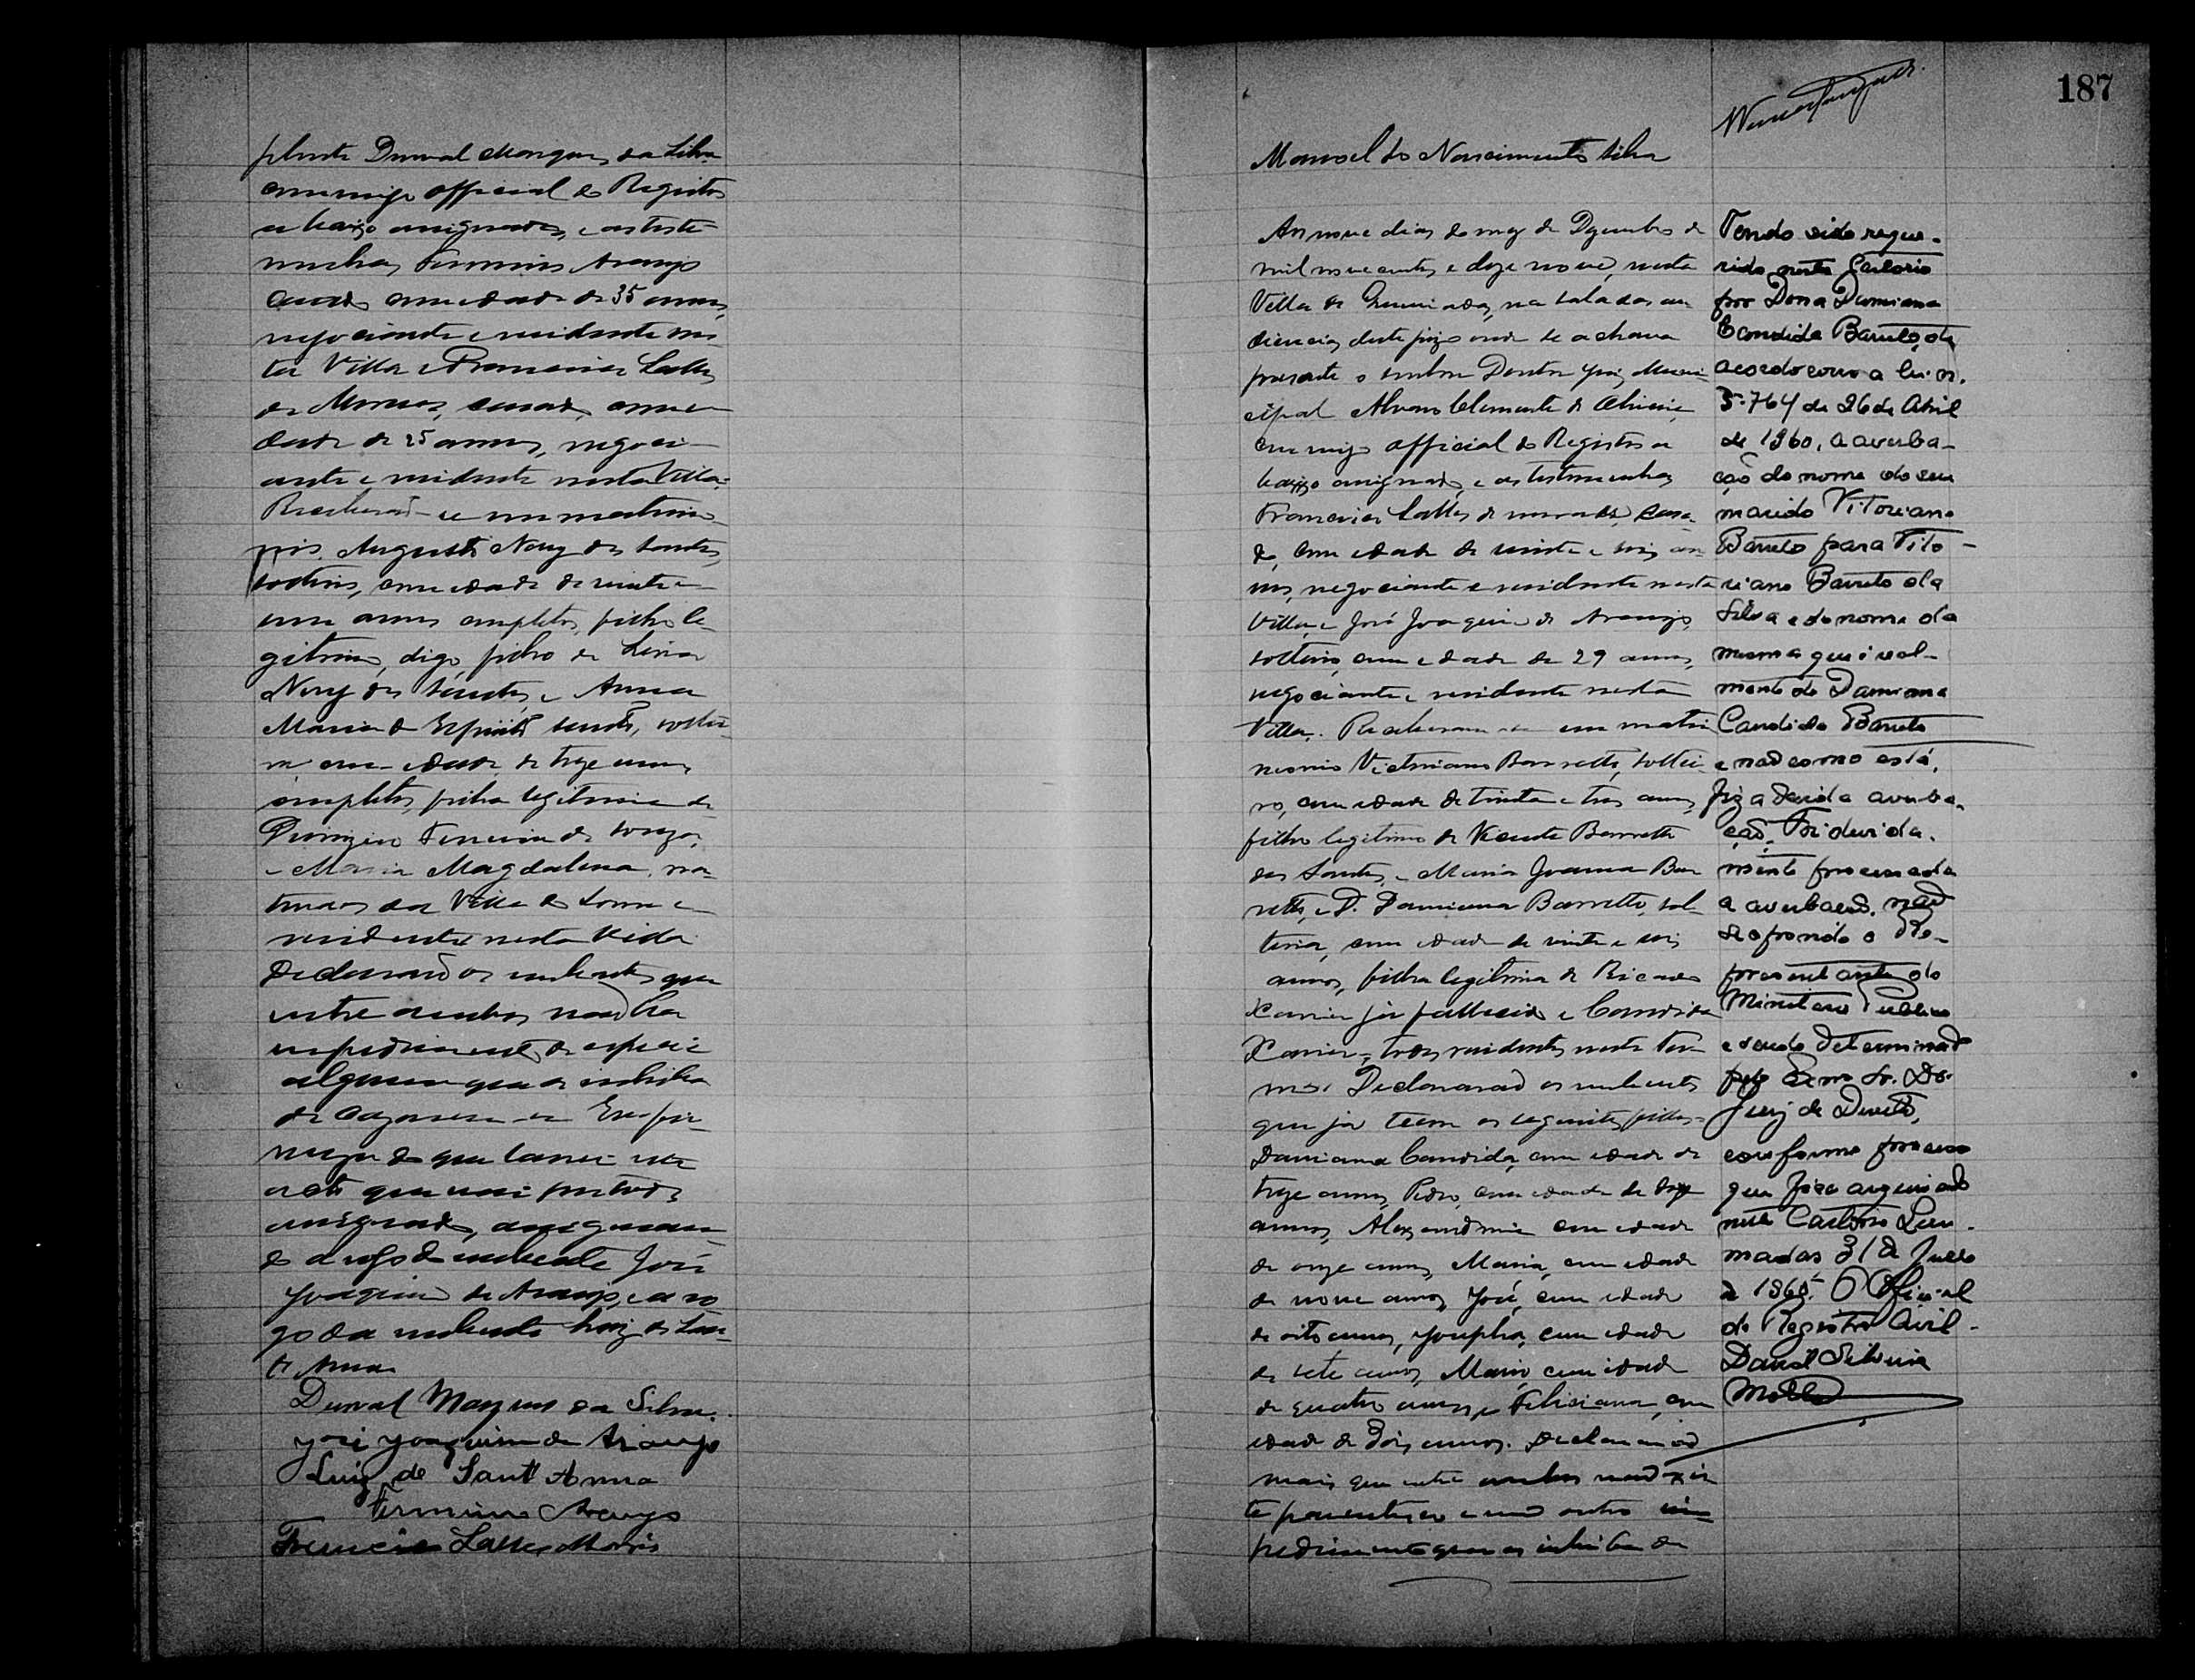 plente Durval Marques da Silva
commigo official do Registro
abaixo assignado, e as teste-
munhas Firmino Araujo
casado com edade de 35 annos,
negociante e residente nes-
ta Villa e Francisco Salles
de Moraes, casado, com e
dade de 25 annos, negoci-
ante e residente nesta Villa.
Receberão-se em matrimo-
nio Augusto Nery dos Santos,
solteiro, com edade de vinte e
um annos completos, filho le-
gitimo, digo, filho de Lina
Nery dos Santos, e Anna
Maria do Espirito Santo, soltei-
ra com edade de treze annos
completos, filha legitima de
Ferreira de Souza,
e Maria Magdalena, na-
turaes da Villa do Conde e
residentes nesta Villa.
Declararão os nubentes que
entre ambos não ha
impedimento de especie
alguma que os inhiba
de casarem-se. Em fir-
meza do que lavrei este
acto que vai por todos
assignado, assignan-
do a rogo do nubente José
Joaquim de Araujo, e a ro-
go da nubente Luiz de San-
t'Anna
Durval Marques da Silva.
José Joaquim de Araujo
Luiz de Sant'Anna
Firmino Araujo
Francisco Salles Moraes
187
Manoel do Nascimento Silva
Aos nove dias do mez de Dezembro de
mil novecentos e deze nove, nesta
Villa de na sala das au-
diencias deste juizo onde se achava
presente o senhor Doutor Juiz Muni-
cipal Alvaro Clemente de Oliveira,
commigo official do Registro a
baixo assignado, e as testemunhas
Francisco Salles de Moraes, casa-
do, com edade de vinte e seis an-
nos, negociante e residente nesta
Villa, e José Joaquim de Araujo,
solteiro, com edade de 29 annos,
negociante e residente nesta
Villa. Receberam-se em matri-
monio Victoriano Barretto, soltei-
ro, com edade de trinta e tres annos,
filho legitimo de Vicente Barretto
dos Santos, e Maria Joanna Bar-
retto, e D. Damiana Barretto, sol-
teira, com edade de vinte e seis
annos, filha legitima de Ricardo
Xavier já fallecido e Candida
Xavier, todos residentes neste Ter-
mo. Declararão os nubentes
que já teem os seguintes filhos:
Damiana Candida, com edade de
treze annos, Pedro, com edade de doze
annos, Alexandrina com edade
de onze annos, Maria, com edade
de nove annos, José, com edade
de oito annos, Josepha, com edade
de sete annos, Mario, com edade
de quatro annos, e Feliciana, com
edade de dois annos. Declararão
mais que entre ambos não exis-
te parentesco e nem outro im-
pedimento que os inhiba de
Tendo sido reque-
rido neste Cartorio
por Dona Damiana
Candida Barreto, de
acordo com a lei n.
3.764 de 26 de Abril
de 1960, a averba-
ção do nome do seu
marido Vitoriano
Barreto para Vito-
riano Barreto da
Silva e do nome da
mesma que é real-
mente de Damiana
Candida Barreto
e não como está,
fiz a devida averba-
ção. Foi devida-
mente processada
a averbação, não
se opondo o Re-
presentante do
Ministerio Publico
e sendo determinado
pelo Exmo Sr. Dr.
Juiz de Direito,
conforme processo
que fica arquivado
neste Cartorio
31 de Julho
de 1965. O Oficial
do Registro Civil.
Silveira